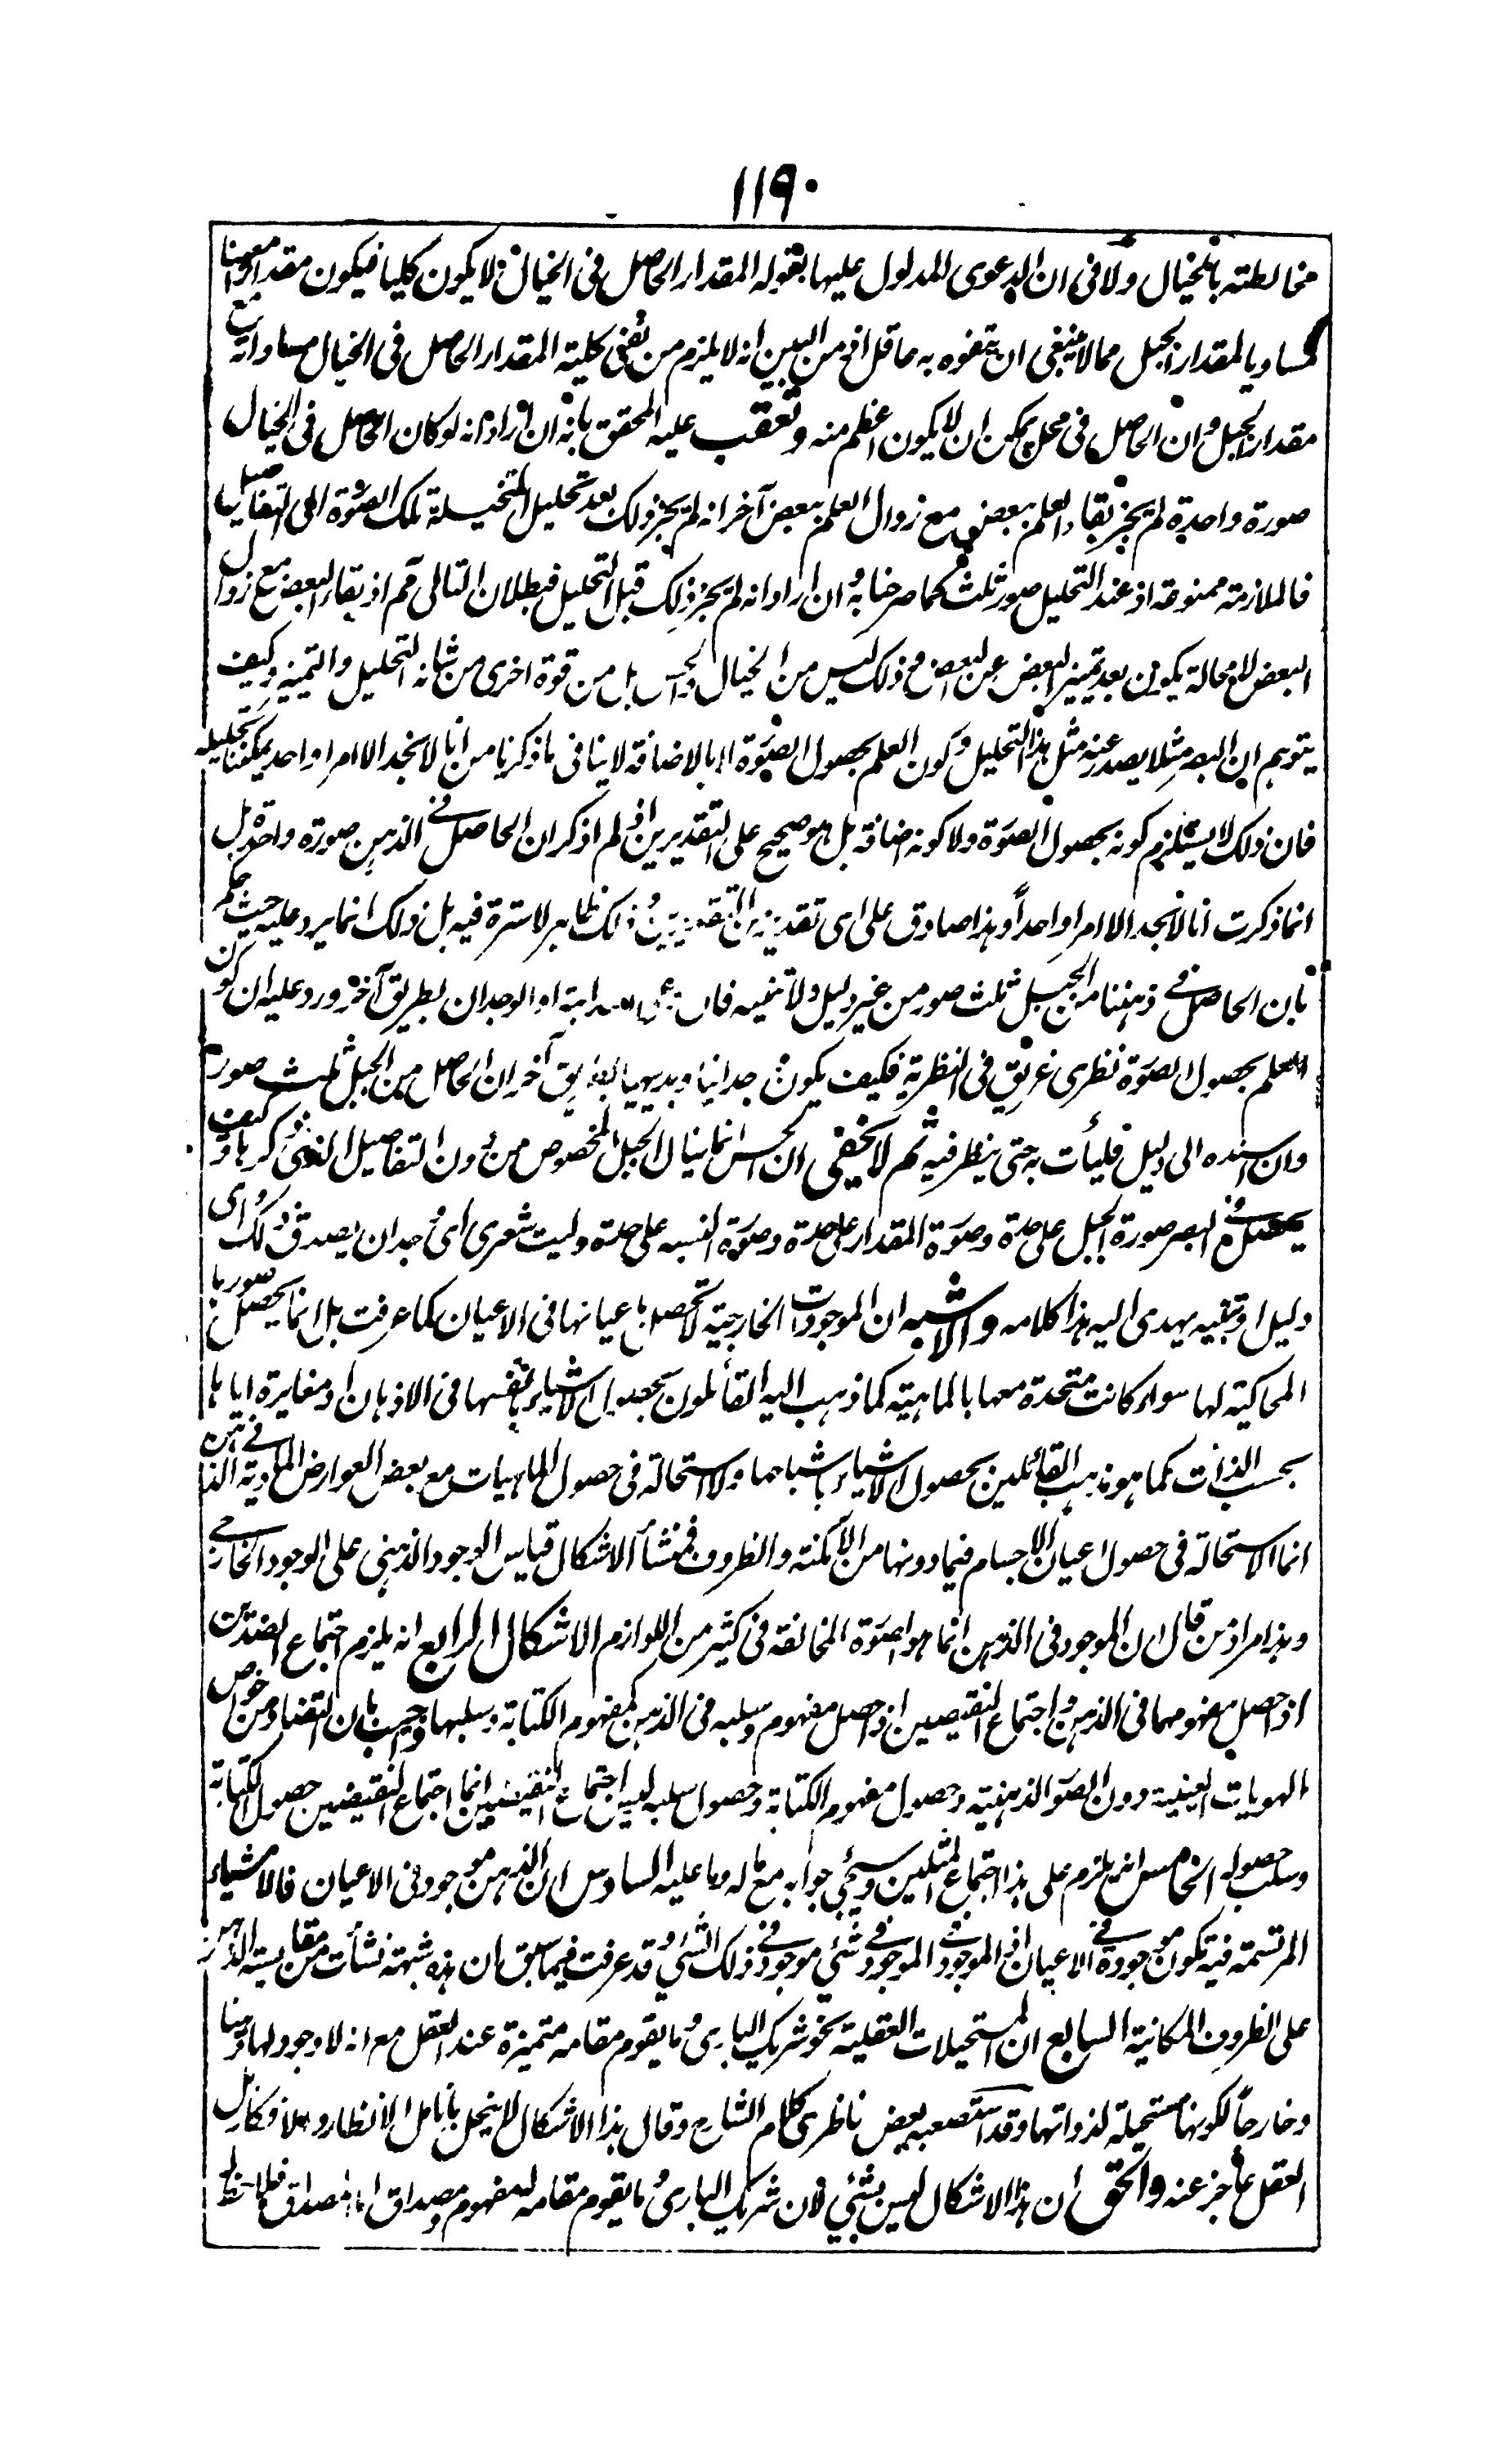 ١١٩٠
مخالطته بالخيال ولا في ان الدعوى المدلول عليها بقوله المقدار الحاصل في الخيال لا يكون كليا فيكون مقدارا معينا
مساويا لمقدار الجبل مما لا ينبغي ان يتفوه به عاقل اذ من البين انه لا يلزم من نفي كلية المقدار الحاصل في الخيال مساواته مع
مقدار الجبل وان الحاصل في محل يمكن ان لا يكون اعظم منه وتعقب عليه المحقق بانه ان اراد انه لو كان الحاصل في الخيال
صورة واحدة لم يجز بقاء العلم ببعض مع زوال العلم ببعض آخر انه لم يجز ذلك بعد تحليل المتخيلة تلك الصورة الى التفاصيل
فالملازمة ممنوعة اذ عند التحليل صور ثلث كما صرحنا به وان اراد انه لم يجز ذلك قبل التحليل فبطلان التالى مم اذ بقاء البعض مع زوال
البعض لا محالة يكون بعد تميز البعض عن البعض وذلك ليس من الخيال والحس بل من قوة اخرى من شانه التحليل والتميز وكيف
يتوهم ان البصر مثلا يصدر عنه مثل هذا التحليل وكون العلم بحصول الصورة او بالاضافة لا ينافى ما ذكرنا من انا لا نجد الا امرا واحدا يمكننا تحليله
فان ذلك لا يستلزم كونه بحصول الصورة ولا كونه اضافة بل هو صحيح على التقديرين اذ لم اذكر ان الحاصل في الذهن صورة واحدة بل
انما ذكرت انا لا نجد الا امرا واحداً وهذا صادق على اى تقدير من التقديرين وذلك ظاهر لا سترة فيه بل ذلك انما يرد عليه حيث حكم
بان الحاصل في ذهننا من الجبل ثلث صور من غير دليل ولا تنبيه فان البداهة او الوجدان بطريق آخر ورد عليه ان كون
العلم بحصول الصورة نظرى غريق في النظرية فكيف يكون وجدانيا وبديهيا بطريق آخر ان الحاصل من الجبل ثلث صور
وان اسنده الى دليل فليأت به حتى ينظر فيه ثم لا يخفى ان الحس انما ينال الجبل المخصوص من دون التفاصيل الذى ذكرها وكيف
يحصل في البصر صورة الجبل على حدة وصورة المقدار على حدة وصورة النسبه على حدة وليت شعرى اى وجدان يصدق ذلك واى
دليل او تنبيه يهدى اليه هذا كلامه والاشبه ان الموجودات الخارجية لا تحصل باعيانها في الاعيان كما عرفت بل انما يحصل صورها
المحاكية لها سواء كانت متحدة معها بالماهية كما ذهب اليه القائلون بحصول الاشياء بانفسها في الاذهان او مغايرة اياها
بحسب الذات كما هو مذهب القائلين بحصول الاشياء باشباحها ولا استحالة في حصول الماهيات مع بعض العوارض المادية في الذهن
انما الاستحالة في حصول اعيان الاجسام فيما دونها من الامكنة والظروف فمنشأ الاشكال قياس الوجود الذهني على الوجود الخارجي
وهذا مراد من قال ان الموجود في الذهن انما هو الصورة المخالفة في كثير من اللوازم الاشكال الرابع انه يلزم اجتماع الضدين
اذا حصل مفهومهما في الذهن واجتماع النقيضين اذا حصل مفهوم وسلبه في الذهن كمفهوم الكتابة وسلبها واجيب بان التضاد من خواص
الهويات العينية دون الصور الذهنية وحصول مفهوم الكتابة وحصول سلبه ليس اجتماع النقيضين انما اجتماع النقيضين حصول الكتابة
وسلب حصوله الخامس انه يلزم على هذا اجتماع المثلين وسيجئ جوابه مع ما له وما عليه السادس ان الذهن موجود في الاعيان فالاشياء
المرتسمة فيه تكون موجودة في الاعيان اذ الموجود في الموجود في شئ موجود في ذلك الشئ وقد عرفت فيما سبق ان هذه شبهة نشأت من مقايسة الذهن
على الظروف المكانية السابع ان المستحيلات العقلية نحو شريك البارى وما يقوم مقامه متميزة عند العقل مع انه لا وجود لها ذهنا
وخارجاً لكونها مستحيلة لذواتها وقد استصعبه بعض ناظرى كلام الشارح وقال هذا الاشكال لا ينحل بانامل الانظار والافكار بل
العقل عاجز عنه والحق ان هذا الاشكال ليس بشئ فان شريك البارى وما يقوم مقامه له مفهوم ومصداق اما مصداق فلا حظ له